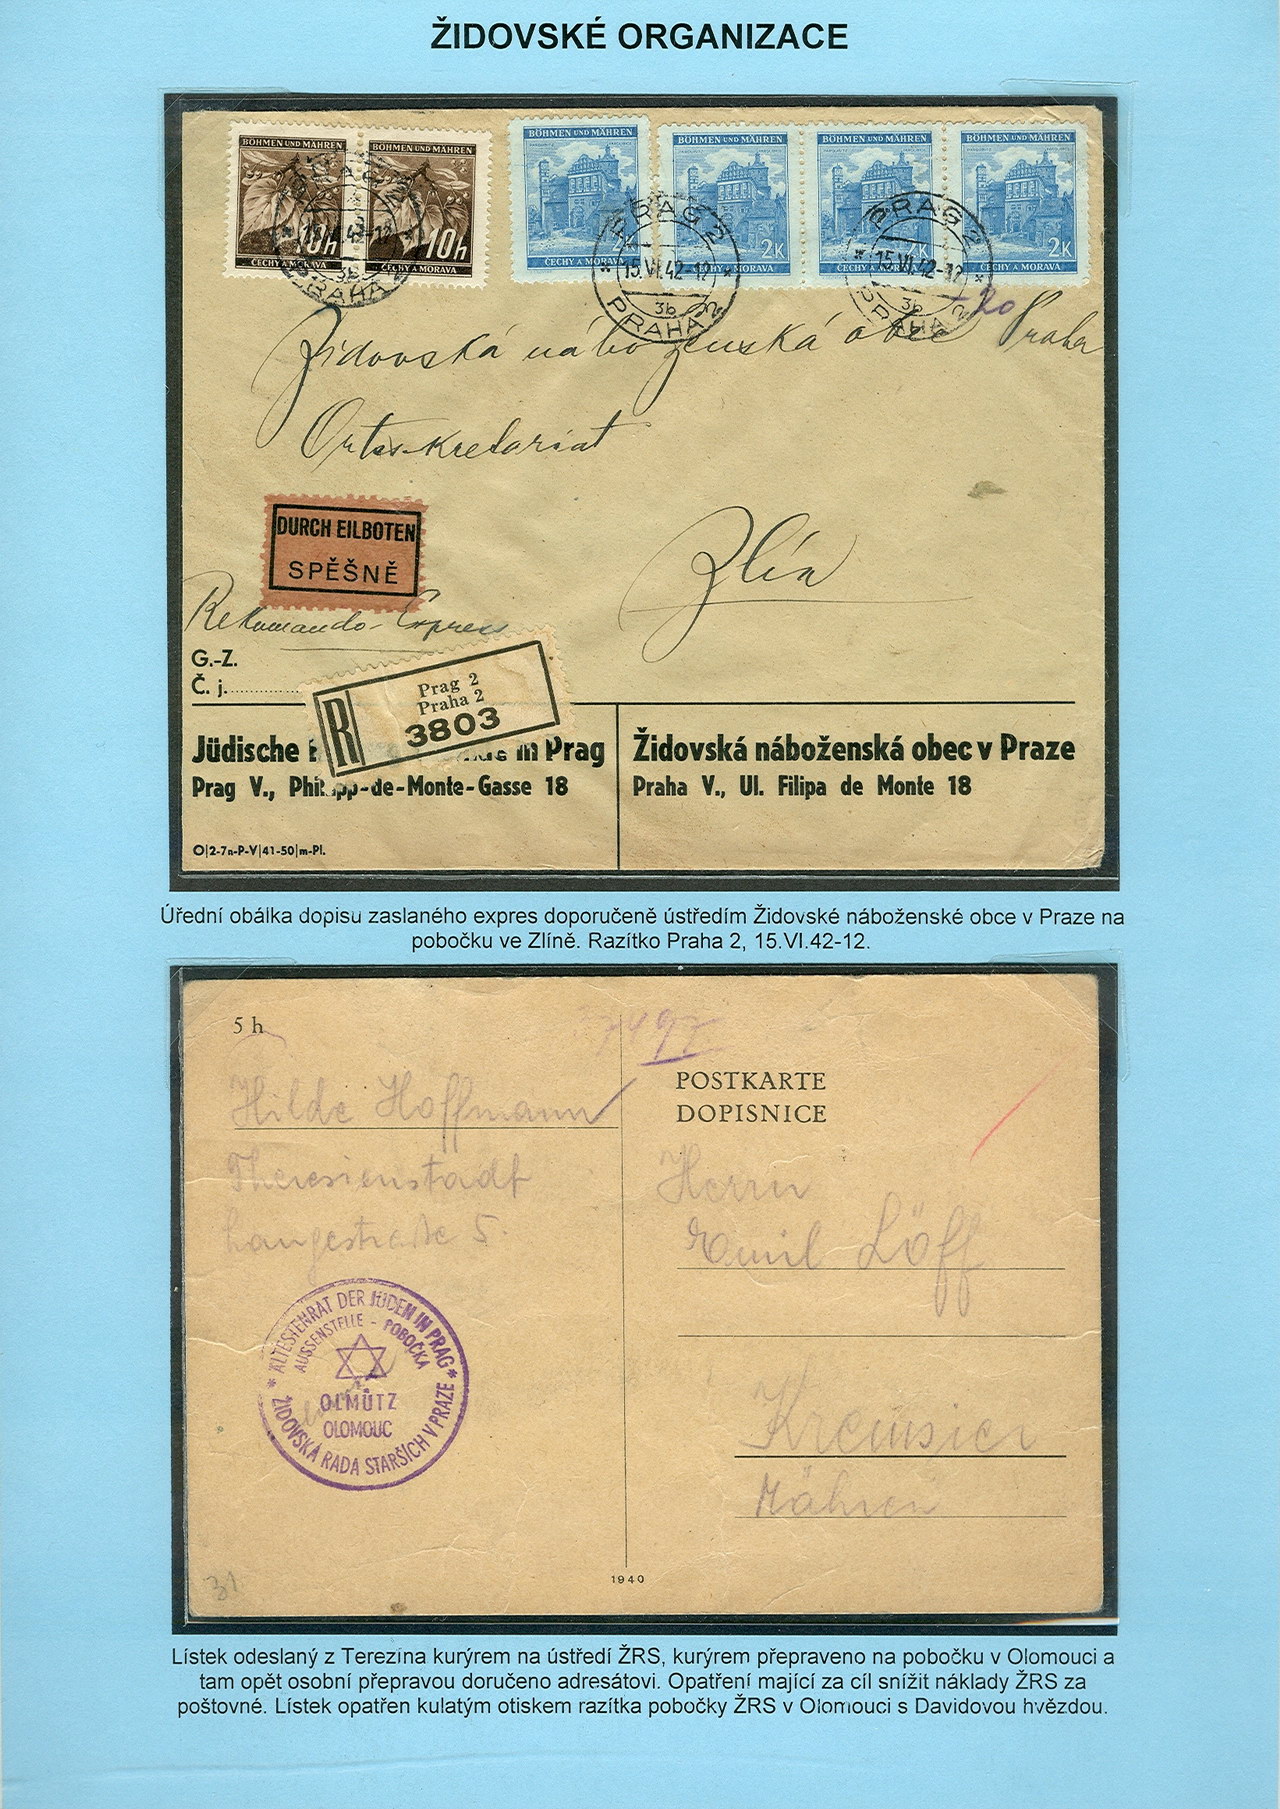 ŽIDOVSKÉ ORGANIZACE
BÖHMEN UND MÄHREN
BÖHMEN UND MÄHREN
BÖHMEN UND MÄHREN
BÖHMEN UND MÄHREN
BÖHMEN UND MÄHREN
BÖHMEN UND MÄHREN
10h
10h
2K
2K
2K
ČECHY A MORAVA
ČECHY A MORAVA
ČECHY A MORAVA
ČECHY A MORAVA
ČECHY A MORAVA
ČECHY A MORAVA
3b
PRAHA
PRAG 2
15.VI.42-12
3b
PRAHA 2
PRAG 2
15.VI.42-12
3b
PRAHA 2
20
Židovská náboženská obec Praha
Ortssekretariat
Zlín
DURCH EILBOTEN
SPĚŠNĚ
Rekomando-Express
G.-Z.
Č. j.
R
Prag 2
Praha 2
3803
Jüdische in Prag
Prag V., Philipp-de-Monte-Gasse 18
Židovská náboženská obec v Praze
Praha V., Ul. Filipa de Monte 18
O|2-7n-P-V|41-50|m-Pl.
Úřední obálka dopisu zaslaného expres doporučeně ústředím Židovské náboženské obce v Praze na
pobočku ve Zlíně. Razítko Praha 2, 15.VI.42-12.
5 h
Hilde Hoffmann
Theresienstadt
Langestraße 5.
ÄLTESTENRAT DER JUDEN IN PRAG
AUSSENSTELLE - POBOČKA
OLMÜTZ
OLOMOUC
ŽIDOVSKÁ RADA STARŠÍCH V PRAZE
31
POSTKARTE
DOPISNICE
Herrn
Emil Löff
Kremsier
Mähren
1940
Lístek odeslaný z Terezína kurýrem na ústředí ŽRS, kurýrem přepraveno na pobočku v Olomouci a
tam opět osobní přepravou doručeno adresátovi. Opatření mající za cíl snížit náklady ŽRS za
poštovné. Lístek opatřen kulatým otiskem razítka pobočky ŽRS v Olomouci s Davidovou hvězdou.